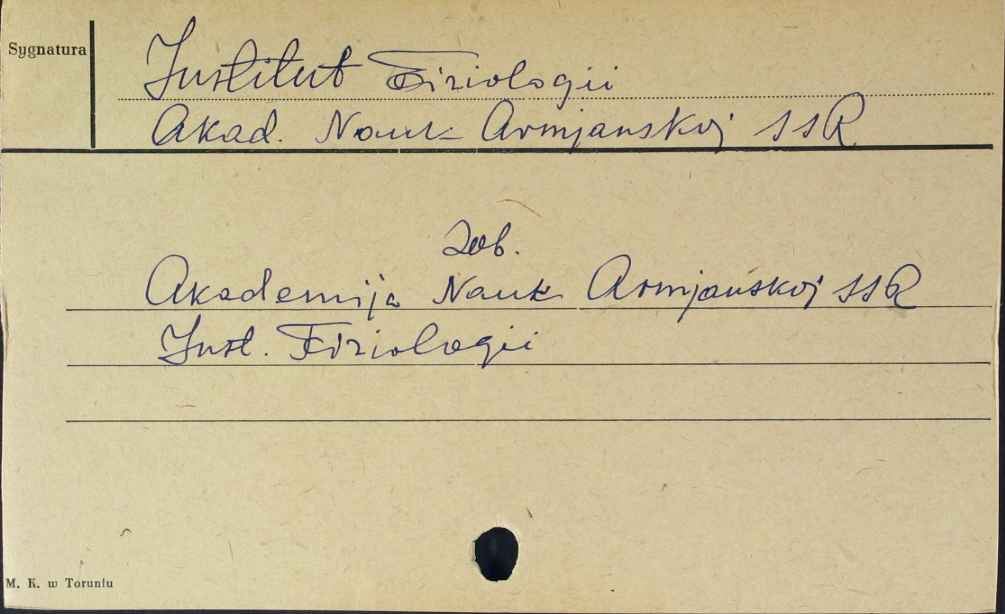 Sygnatura
Institut Fiziologii
Akad. Nauk Armjanskoj SSR
Zob.
Akademija Nauk Armjanskoj SSR
Inst. Fiziologii
M. K. w Toruniu